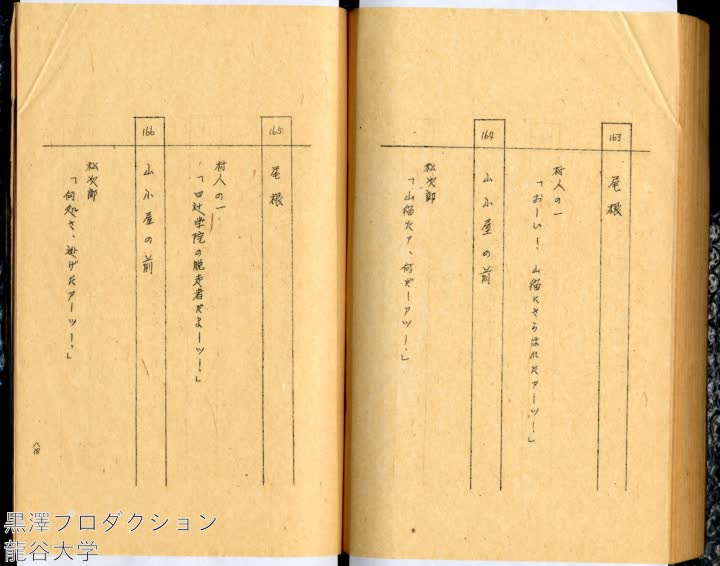 163
尾根
村人の一
「おーい!山猫にさらはれたァーツ!」
164
山小屋の前
松次郎
「山猫たァ、何だーァツ!」
165
尾根
村人の一
「四辻学院の脱走者だよーツ!」
166
山小屋の前
松次郎
「何処さ、逃げたァーツ!」
黒澤プロダクション
龍谷大学